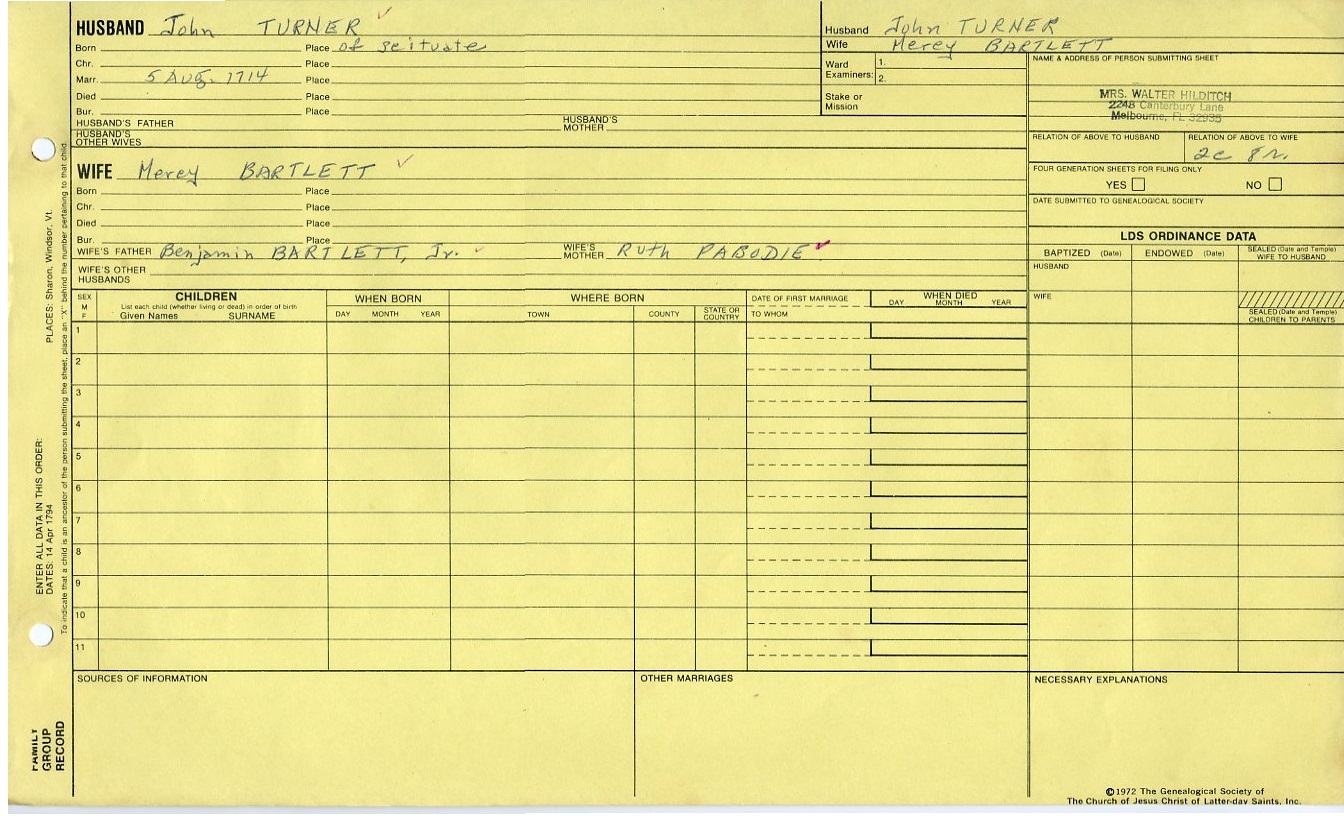 HUSBAND John TURNER ✓
Born Place of Scituate
Chr. Place
Marr. 5 Aug. 1714 Place
Died Place
Bur. Place
HUSBAND'S FATHER HUSBAND'S MOTHER
HUSBAND'S OTHER WIVES
Husband John TURNER
Wife Mercy BARTLETT
Ward Examiners: 1.
2.
Stake or Mission
NAME & ADDRESS OF PERSON SUBMITTING SHEET
MRS. WALTER HILDITCH
2248 Canterbury Lane
Melbourne, FL 32935
RELATION OF ABOVE TO HUSBAND RELATION OF ABOVE TO WIFE
2c 8r.
FOUR GENERATION SHEETS FOR FILING ONLY
YES □ NO □
DATE SUBMITTED TO GENEALOGICAL SOCIETY
WIFE Mercy BARTLETT ✓
Born Place
Chr. Place
Died Place
Bur. Place
WIFE'S FATHER Benjamin BARTLETT, Jr. ✓ WIFE'S MOTHER Ruth PABODIE ✓
WIFE'S OTHER HUSBANDS
LDS ORDINANCE DATA
BAPTIZED (Date) ENDOWED (Date) SEALED (Date and Temple) WIFE TO HUSBAND
HUSBAND
WIFE
SEALED (Date and Temple) CHILDREN TO PARENTS
SEX M F
CHILDREN
List each child (whether living or dead) in order of birth
Given Names SURNAME
WHEN BORN
DAY MONTH YEAR
WHERE BORN
TOWN COUNTY STATE OR COUNTRY
DATE OF FIRST MARRIAGE
TO WHOM
WHEN DIED
DAY MONTH YEAR
1
2
3
4
5
6
7
8
9
10
11
SOURCES OF INFORMATION OTHER MARRIAGES NECESSARY EXPLANATIONS
©1972 The Genealogical Society of
The Church of Jesus Christ of Latter-day Saints, Inc.
FAMILY
GROUP
RECORD
ENTER ALL DATA IN THIS ORDER:
DATES: 14 Apr 1794 PLACES: Sharon, Windsor, Vt.
To indicate that a child is an ancestor of the person submitting the sheet, place an "X" behind the number pertaining to that child.